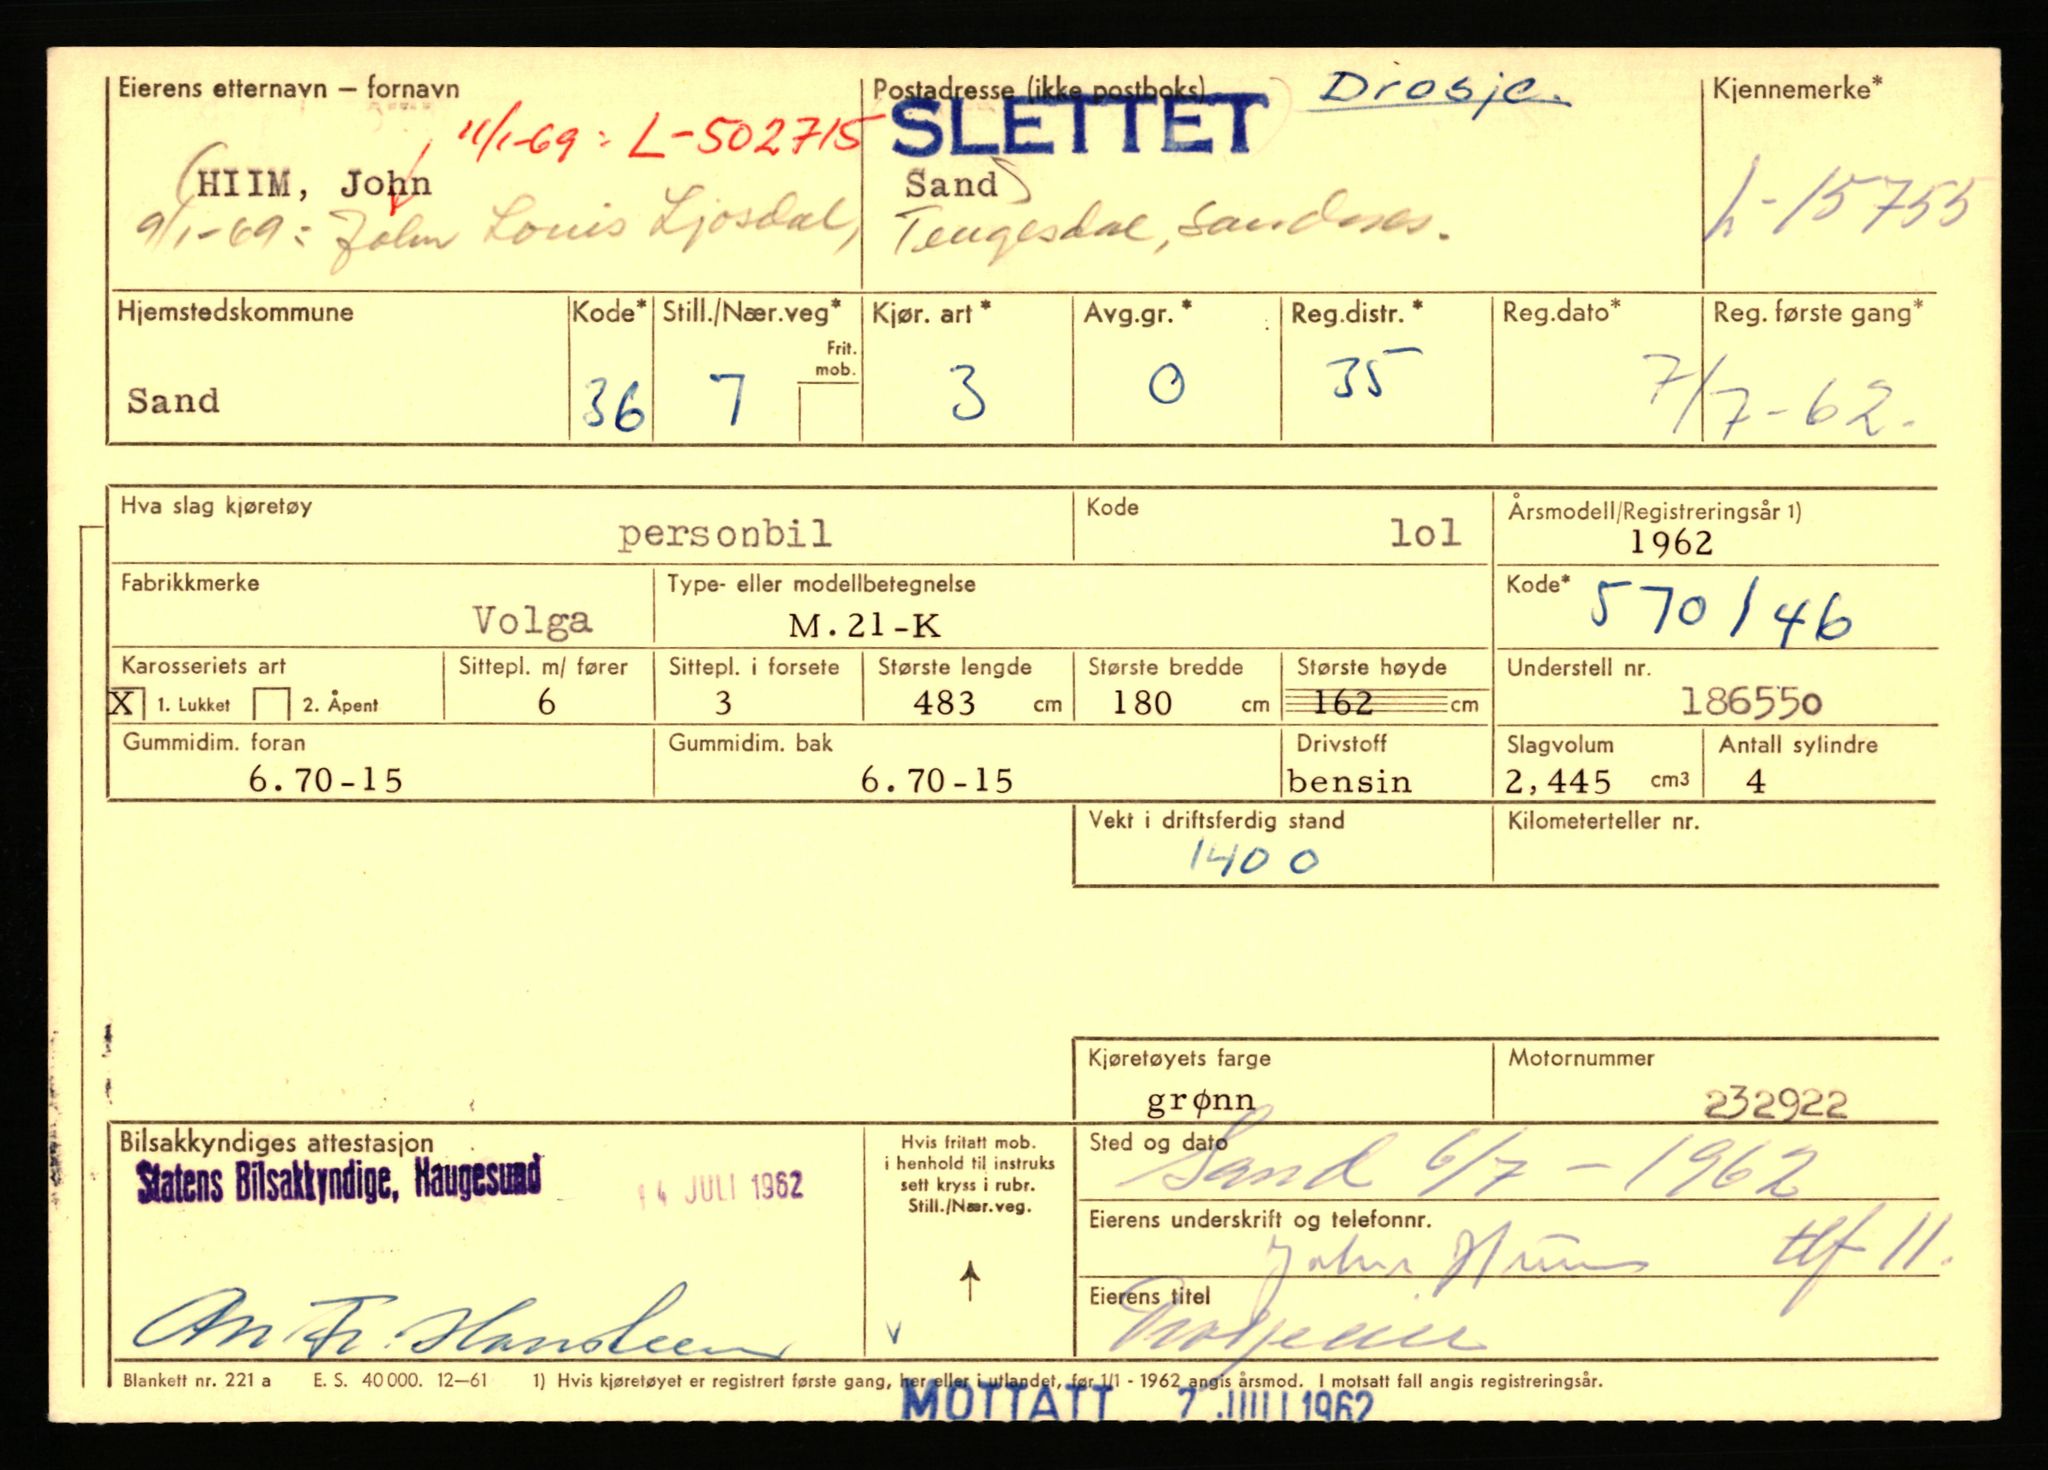 Eierens etternavn – fornavn
Postadresse (ikke postboks)
Drosje.
Kjennemerke*
11/1-69: L-502715
SLETTET
(HIIM, John
Sand)
L-15755
9/1-69: John Louis Ljosdal, Tengesdal, Sandnes.
Hjemstedskommune
Kode*
Still./Nær.veg*
Kjør. art*
Avg.gr.*
Reg.distr.*
Reg.dato*
Reg. første gang*
Frit. mob.
Sand
36
7
3
0
35
7/7-62.
Hva slag kjøretøy
personbil
Kode
lol
Årsmodell/Registreringsår 1)
1962
Fabrikkmerke
Volga
Type- eller modellbetegnelse
M.21-K
Kode*
570/46
Karosseriets art
X 1. Lukket 2. Åpent
Sittepl. m/ fører
6
Sittepl. i forsete
3
Største lengde
483 cm
Største bredde
180 cm
Største høyde
162 cm
Understell nr.
186550
Gummidim. foran
6.70-15
Gummidim. bak
6.70-15
Drivstoff
bensin
Slagvolum
2,445 cm3
Antall sylindre
4
Vekt i driftsferdig stand
1400
Kilometerteller nr.
Kjøretøyets farge
grønn
Motornummer
232922
Bilsakkyndiges attestasjon
Statens Bilsakkyndige, Haugesund
14 JULI 1962
Hvis fritatt mob.
i henhold til instruks
sett kryss i rubr.
Still./Nær.veg.
Sted og dato
Sand 6/7 – 1962
Eierens underskrift og telefonnr.
John Hiim tlf 11.
Eierens titel
Drosjeeier
Blankett nr. 221 a E. S. 40 000. 12–61 1) Hvis kjøretøyet er registrert første gang, her eller i utlandet, før 1/1 - 1962 angis årsmod. I motsatt fall angis registreringsår.
MOTTATT 7. JULI 1962